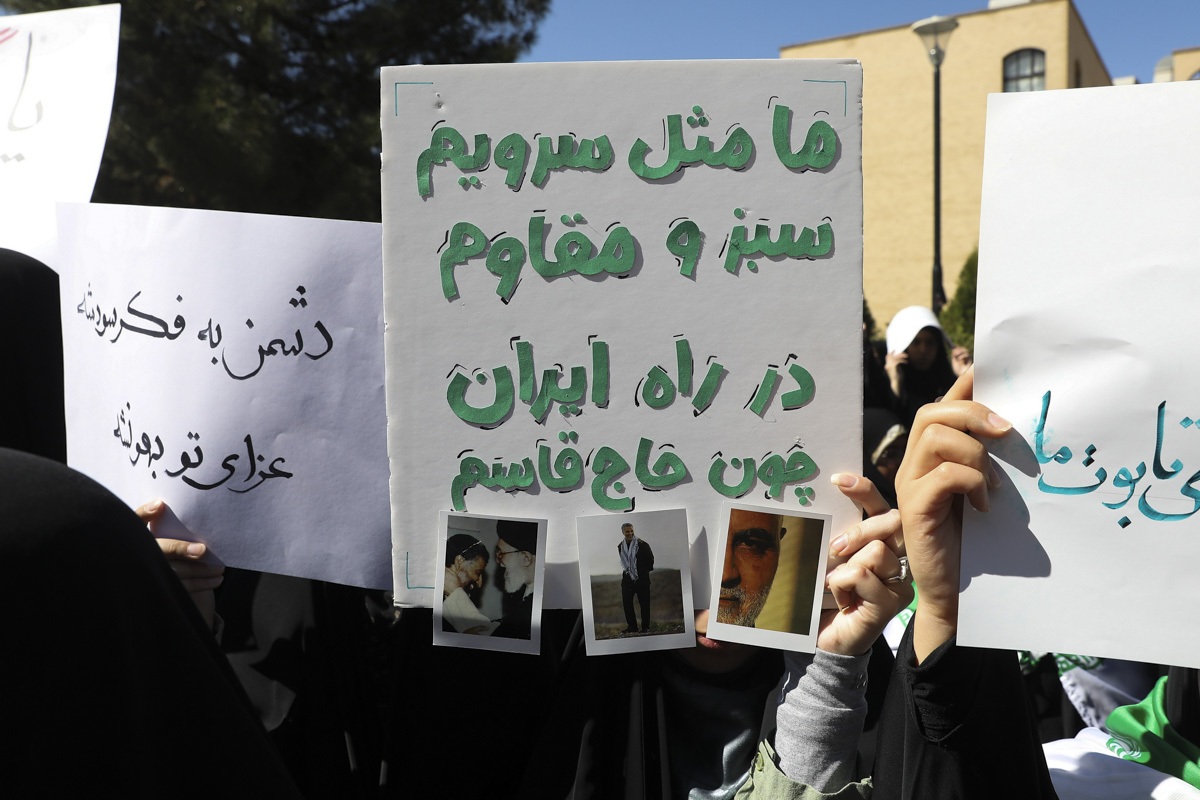 ما مثل سرویم
سبز و مقاوم
در راه ایران
چون حاج قاسم
دشمن به فکر سورشه
عزای تو بهونشه
تابوت ما